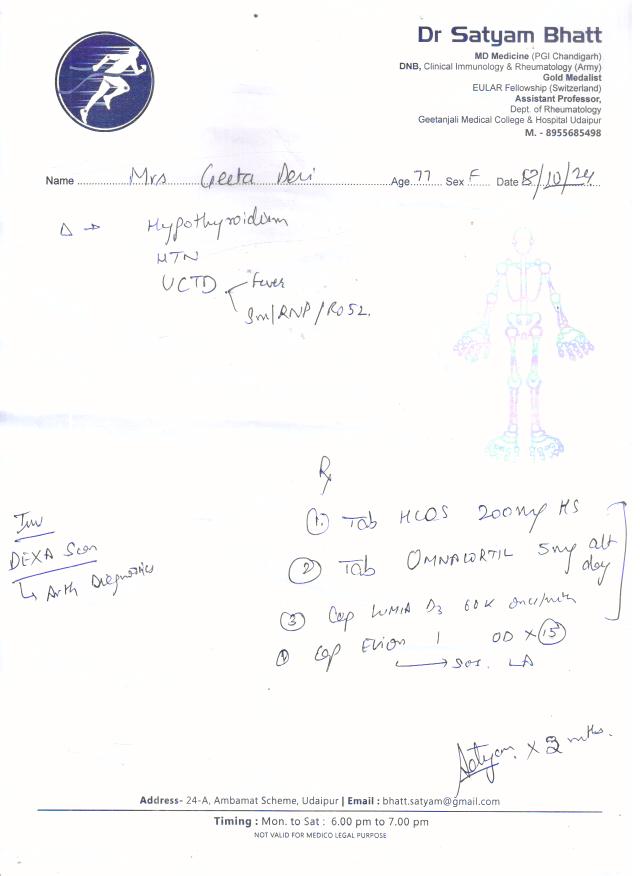 Dr Satyam Bhatt
MD Medicine (PGI Chandigarh)
DNB, Clinical Immunology & Rheumatology (Army)
Gold Medalist
EULAR Fellowship (Switzerland)
Assistant Professor,
Dept. of Rheumatology
Geetanjali Medical College & Hospital Udaipur
M. - 8955685498
Name Mrs Geeta Devi Age 77 Sex F Date 8/10/24
Δ → Hypothyroidism
HTN
UCTD Fever
Sm/RNP/Ro52.
Rx
Inv
DEXA Scan
↳ Arth Diagnostics
① Tab HCQS 200mg HS
② Tab OMNACORTIL 5mg alt day
③ Cap LUMIA D3 60K once/mth
④ Cap 1 OD x 15
→ SOS.
Satyam. x 3 mths.
Address- 24-A, Ambamat Scheme, Udaipur | Email : bhatt.satyam@gmail.com
Timing : Mon. to Sat : 6.00 pm to 7.00 pm
NOT VALID FOR MEDICO LEGAL PURPOSE